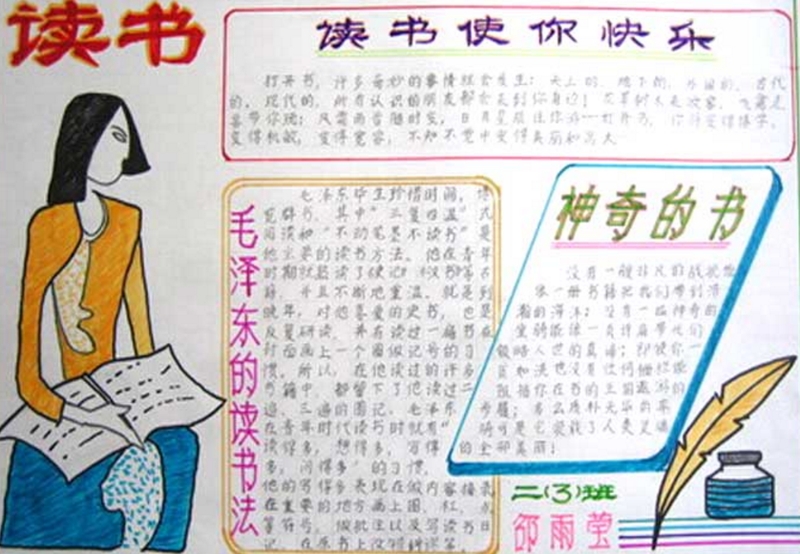 读书
读书使你快乐
打开书，许多奇妙的事情就会发生：天上的、地下的、外国的、古代
的、现代的，所有认识的朋友都会来到你身边；花草树木来做客，飞禽走
兽带你玩；风霜雨雪随时变，日月星辰任你游一打开书，你将变得博学，
变得机敏，变得宽容，不知不觉中变得美丽和高大
毛泽东的读书法
毛泽东毕生珍惜时间，博
览群书。其中“三复四温”式
阅读和“不动笔墨不读书”是
他主要的读书方法。他在青年
时期就熟读了《史记》《汉书》等古
籍，并且不断地重温。就是到
晚年，对他喜爱的史书，也是
反复研读，并有读过一遍书在
封面画上一个圈做记号的习
惯。所以，在他读过的许多
书籍中，都留下了他读过二
遍、三遍的圈记。毛泽东
在青年时代读书时就有“
读得多，想得多，写得
多，问得多”的习惯，
他的写得多表现在做内容摘录
在重要的地方画上圈、杠、点
等符号，做批注以及写读书日
记、在原书上
神奇的书
没有一艘非凡的战舰能
像一册书籍把我们带到浩
瀚的海洋；没有一匹神奇的
坐骑能像一页诗扉带我们
领略人世的真谛；即使你一
贫如洗也没有任何栅栏能
阻挡你在书的王国遨游的
步履；多么质朴无华的车
骑可是它装载了人类灵魂
的全部美丽！
二(3)班
邵雨莹